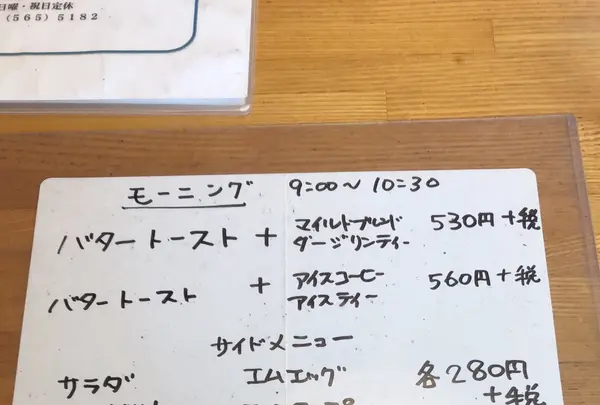 日曜・祝日定休
(565) 5182
モーニング 9:00～10:30
バタートースト + マイルドブレンド 530円+税
ダージリンティー
バタートースト + アイスコーヒー 560円+税
アイスティー
サイドメニュー
サラダ エムエッグ 各280円
+税